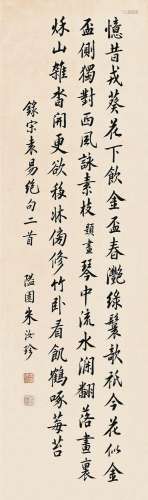 憶昔戎葵花下飲金盃春灩綠鬟歌祇今花似金
盃側獨對西風詠素枝題畫琴中流水澗翻落畫裏
秌山雜沓開更欲移牀傍修竹卧看飢鶴啄莓苔
錄宋袁易絕句二首 隘園朱汝珍